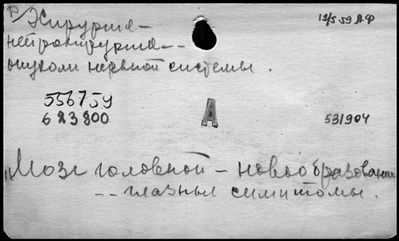 Р/Хирургия –
нейрохирургия – –
опухоли нервной системы.
13/5 59 АФ
556759
623800
А
531904
"Мозг головной – новообразования
– – глазные симптомы.